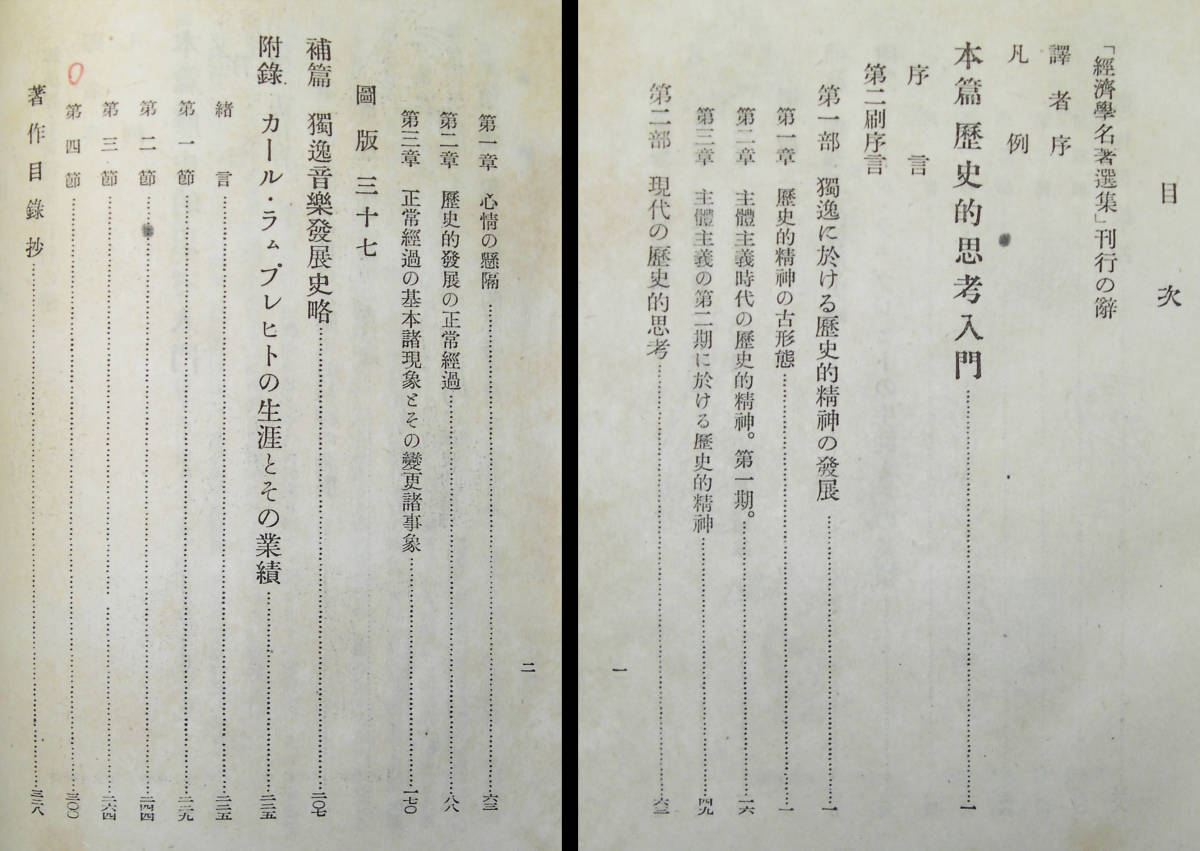 目次
「經濟學名著選集」刊行の辭
譯者序
凡例
本篇 歷史的思考入門……一
序言
第二刷序言
第一部 獨逸に於ける歷史的精神の發展……一
第一章 歷史的精神の古形態……一
第二章 主體主義時代の歷史的精神。第一期。……一六
第三章 主體主義の第二期に於ける歷史的精神……四九
第二部 現代の歷史的思考……六三
一
二
第一章 心情の懸隔……六三
第二章 歷史的發展の正常經過……八八
第三章 正常經過の基本諸現象とその變更諸事象……一七〇
圖版三十七
補篇 獨逸音樂發展史略……二〇七
附錄 カール・ラムプレヒトの生涯とその業績……二二五
緒言……二二五
第一節……二二九
第二節……二四四
第三節……二六四
第四節……三〇〇
著作目錄抄……三二八